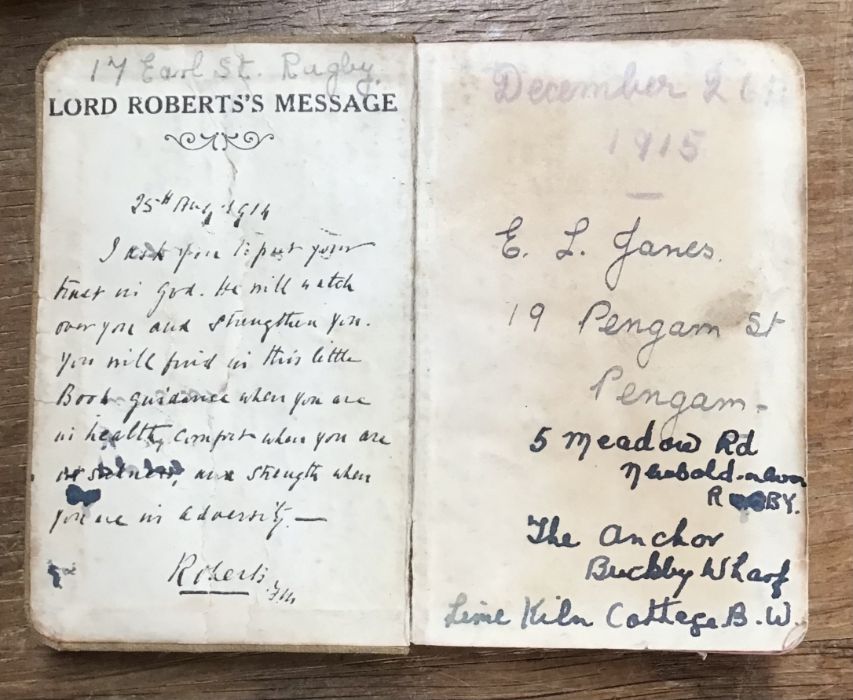 17 Earl St. Rugby.
LORD ROBERTS'S MESSAGE
25th Aug. 1914
I ask you to put your
trust in God. He will watch
over you and strengthen you.
You will find in this little
Book guidance when you are
in health, comfort when you are
in sickness, and strength when
you are in adversity.—
Roberts
FM
December 26th
1915
E. L. Janes.
19 Pengam St
Pengam.
5 Meadow Rd
Newbold-on-Avon
RUGBY.
The Anchor
Buckby Wharf
Lime Kiln Cottage. B. W.